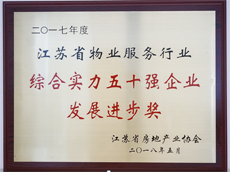 二〇一七年度
江苏省物业服务行业
综合实力五十强企业
发展进步奖
江苏省房地产业协会
二〇一八年五月